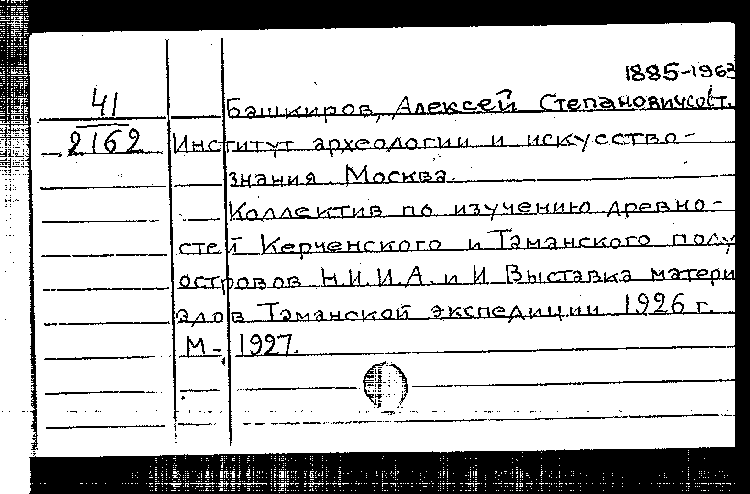 1885-1963
41
Башкиров, Алексей Степанович сост.
2162
Институт археологии и искусство-
знания Москва.
Коллектив по изучению древно-
стей Керченского и Таманского полу
островов Н.И.И.А. и И Выставка матери
алов Таманской экспедиции 1926 г.
М-, 1927.